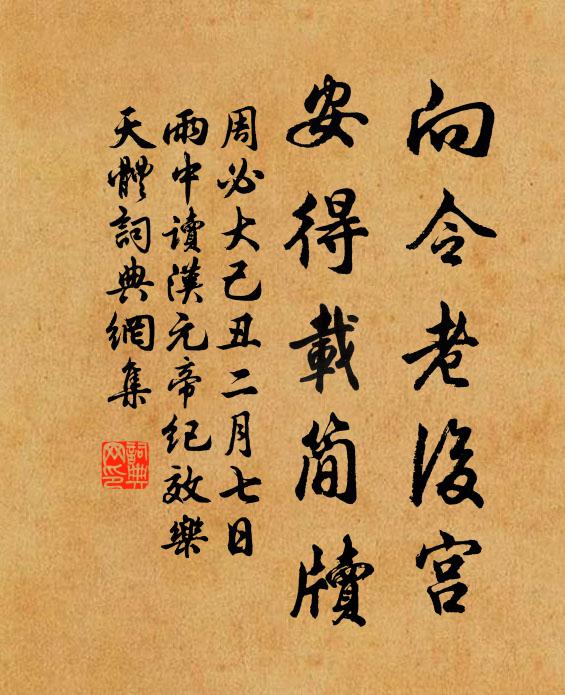 向令老後宮
安得載簡牘
周必大己丑二月七日
雨中读漢元帝纪效樂
天體詞典網集
詞典
网印